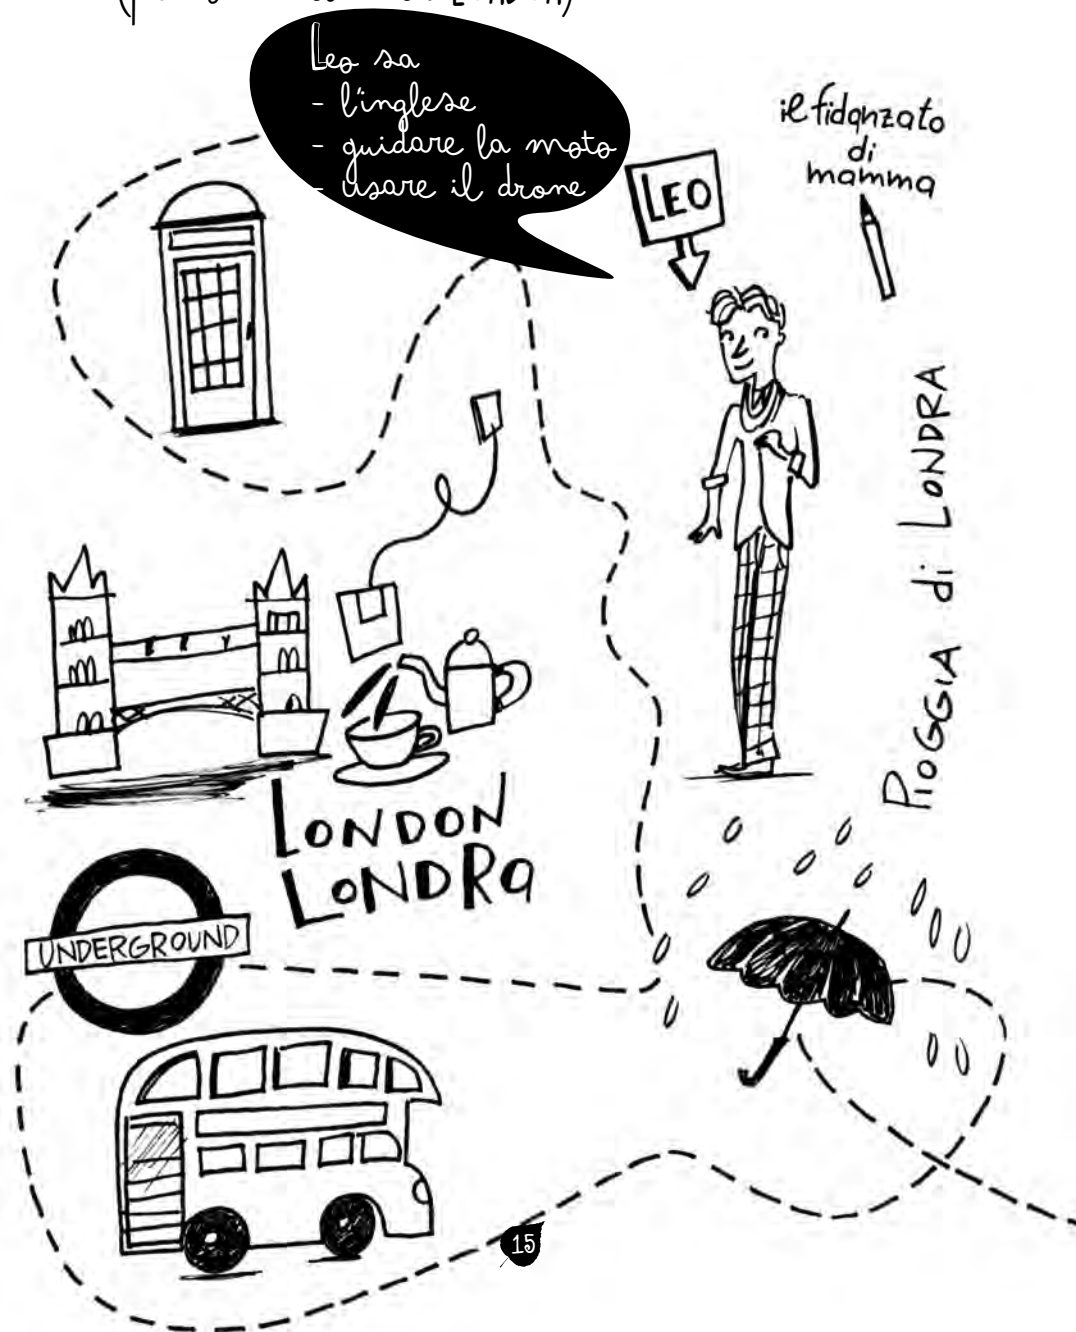 Leo sa
- l'inglese
- guidare la moto
- usare il drone
il fidanzato
di
mamma
LEO
PIOGGIA di LONDRA
LONDON
LONDRa
UNDERGROUND
15